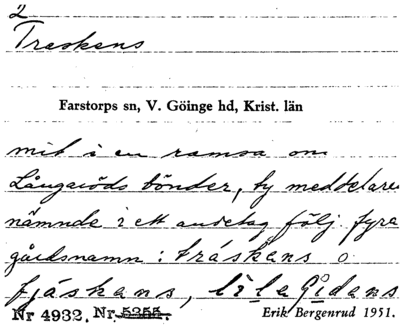 2
Traskens
Farstorps sn, V. Göinge hd, Krist. län
mit i en ramsa om
Långaröds bönder, ty meddelaren
nämnde i ett andetag följ fyra
gårdsnamn: tráskens o
fjáskans, lìla
Nr 4932. Nr 5255. Erik Bergenrud 1951.